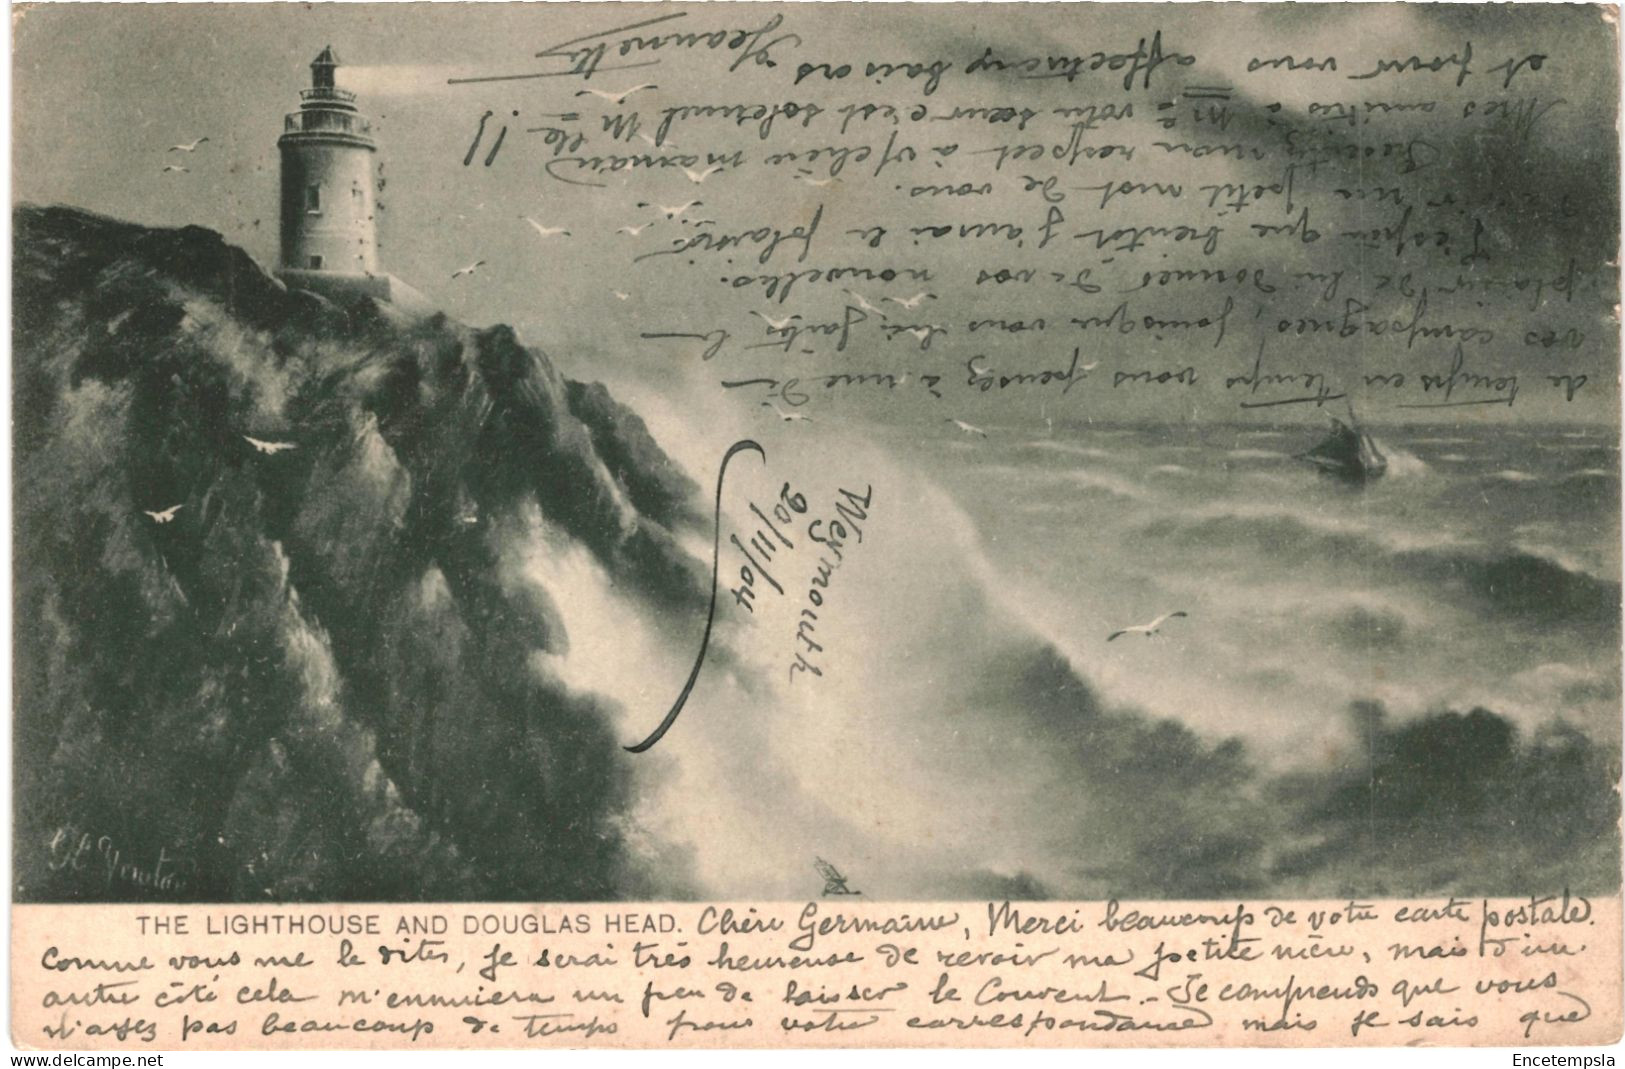 THE LIGHTHOUSE AND DOUGLAS HEAD.
Weymouth
20/11/04
Chère Germaine, Merci beaucoup de votre carte postale.
Comme vous me le dites, je serai très heureuse de revoir ma petite mère, mais d'un
autre côté cela m'ennuiera un peu de laisser le Couvent. - Je comprends que vous
n'avez pas beaucoup de temps pour votre correspondance mais je sais que
de temps en temps vous pensez à une de
vos campagnes, puisque vous lui faites le
plaisir de lui donner de vos nouvelles.
J'espère que bientôt j'aurai le plaisir
un petit mot de vous.
mon respect à v/chère maman
Mes amitiés à Me votre sœur c'est solennel Mlle !!
et pour vous affectueux baisers
Jeannette
Encetempsla